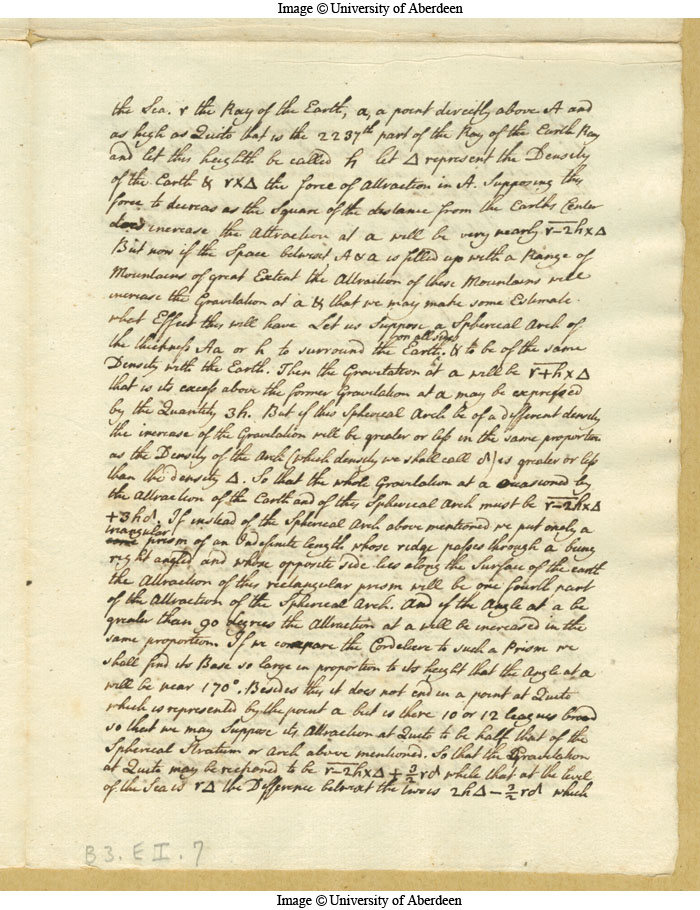 Image © University of Aberdeen
the Sea. r the Ray of the Earth, a, a point directly above A and
as high as Quito that is the 2237th part of the Ray of the Earth Ray
and let this heighth be called h let Δ represent the Density
of the Earth & r×Δ the force of Attraction in A. Supposing this
force to decreas as the Square of the distance from the Earths Center
increase the Attraction at a will be very nearly r-2h×Δ
But now if the Space betwixt A & a is filled up with a Range of
Mountains of great Extent the Attraction of these Mountains will
increase the Gravitation at a & that we may make some Estimate
what Effect this will have Let us Suppose a Spherical Arch of
the thickness Aa or h to surround the Earth on all sides & to be of the same
Density with the Earth. Then the Gravitation at a will be r+h×Δ
that is its excess above the former Gravitation at a may be expressed
by the Quantity 3h. But if this Spherical Arch be of a different density
the increase of the Gravitation will be greater or less in the same proportion
as the Density of the Arch (which density we shall call δ) is greater or less
than the density Δ. So that the whole Gravitation at a occasioned by
the Attraction of the Earth and of this Spherical Arch must be r-2h×Δ
+3hδ. If instead of the Spherical Arch above mentioned we put onely a
triangular
prism of an Indefinite length whose ridge passes through a being
right angled and whose opposite side lies along the Surface of the earth
the Attraction of this rectangular prism will be one fourth part
of the Attraction of the Spherical Arch. And if the Angle at a be
greater than 90 Degrees the Attraction at a will be increased in the
same proportion. If we compare the Cordeliere to such a Prism we
shall find its Base so large in proportion to its height that the Angle at a
will be near 170°. Besides this it does not end in a point at Quito
which is represented by the point a but is there 10 or 12 leagues broad
so that we may Suppose its Attraction at Quito to be half that of the
Spherical Stratum or Arch above mentioned. So that the Gravitation
at Quito may be reckoned to be r-2h×Δ + 3/2 rδ while that at the level
of the Sea is rΔ the Difference betwixt the two is 2hΔ - 3/2 rδ which
B3. E I. 7
Image © University of Aberdeen